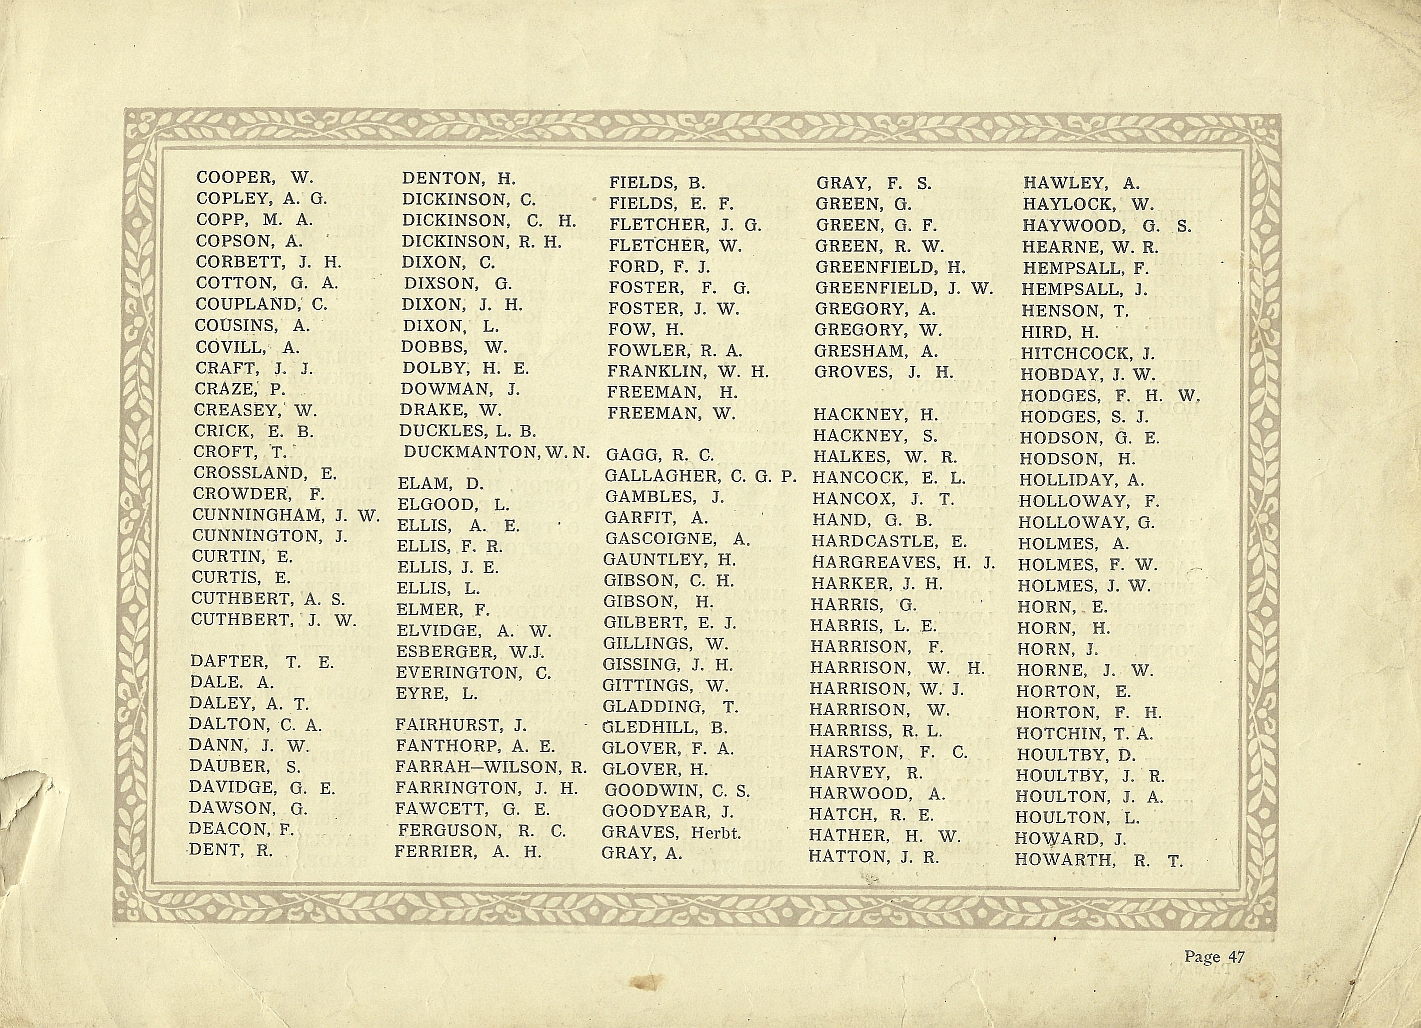 COOPER, W.
COPLEY, A. G.
COPP, M. A.
COPSON, A.
CORBETT, J. H.
COTTON, G. A.
COUPLAND, C.
COUSINS, A.
COVILL, A.
CRAFT, J. J.
CRAZE, P.
CREASEY, W.
CRICK, E. B.
CROFT, T.
CROSSLAND, E.
CROWDER, F.
CUNNINGHAM, J. W.
CUNNINGTON, J.
CURTIN, E.
CURTIS, E.
CUTHBERT, A. S.
CUTHBERT, J. W.
DAFTER, T. E.
DALE. A.
DALEY, A. T.
DALTON, C. A.
DANN, J. W.
DAUBER, S.
DAVIDGE, G. E.
DAWSON, G.
DEACON, F.
DENT, R.
DENTON, H.
DICKINSON, C.
DICKINSON, C. H.
DICKINSON, R. H.
DIXON, C.
DIXSON, G.
DIXON, J. H.
DIXON, L.
DOBBS, W.
DOLBY, H. E.
DOWMAN, J.
DRAKE, W.
DUCKLES, L. B.
DUCKMANTON, W. N.
ELAM, D.
ELGOOD, L.
ELLIS, A. E.
ELLIS, F. R.
ELLIS, J. E.
ELLIS, L.
ELMER, F.
ELVIDGE, A. W.
ESBERGER, W.J.
EVERINGTON, C.
EYRE, L.
FAIRHURST, J.
FANTHORP, A. E.
FARRAH—WILSON, R.
FARRINGTON, J. H.
FAWCETT, G. E.
FERGUSON, R. C.
FERRIER, A. H.
FIELDS, B.
FIELDS, E. F.
FLETCHER, J. G.
FLETCHER, W.
FORD, F. J.
FOSTER, F. G.
FOSTER, J. W.
FOW, H.
FOWLER, R. A.
FRANKLIN, W. H.
FREEMAN, H.
FREEMAN, W.
GAGG, R. C.
GALLAGHER, C. G. P.
GAMBLES, J.
GARFIT, A.
GASCOIGNE, A.
GAUNTLEY, H.
GIBSON, C. H.
GIBSON, H.
GILBERT, E. J.
GILLINGS, W.
GISSING, J. H.
GITTINGS, W.
GLADDING, T.
GLEDHILL, B.
GLOVER, F. A.
GLOVER, H.
GOODWIN, C. S.
GOODYEAR, J.
GRAVES, Herbt.
GRAY, A.
GRAY, F. S.
GREEN, G.
GREEN, G. F.
GREEN, R. W.
GREENFIELD, H.
GREENFIELD, J. W.
GREGORY, A.
GREGORY, W.
GRESHAM, A.
GROVES, J. H.
HACKNEY, H.
HACKNEY, S.
HALKES, W. R.
HANCOCK, E. L.
HANCOX, J. T.
HAND, G. B.
HARDCASTLE, E.
HARGREAVES, H. J.
HARKER, J. H.
HARRIS, G.
HARRIS, L. E.
HARRISON, F.
HARRISON, W. H.
HARRISON, W. J.
HARRISON, W.
HARRISS, R. L.
HARSTON, F. C.
HARVEY, R.
HARWOOD, A.
HATCH, R. E.
HATHER, H. W.
HATTON, J. R.
HAWLEY, A.
HAYLOCK, W.
HAYWOOD, G. S.
HEARNE, W. R.
HEMPSALL, F.
HEMPSALL, J.
HENSON, T.
HIRD, H.
HITCHCOCK, J.
HOBDAY, J. W.
HODGES, F. H. W.
HODGES, S. J.
HODSON, G. E.
HODSON, H.
HOLLIDAY, A.
HOLLOWAY, F.
HOLLOWAY, G.
HOLMES, A.
HOLMES, F. W.
HOLMES, J. W.
HORN, E.
HORN, H.
HORN, J.
HORNE, J. W.
HORTON, E.
HORTON, F. H.
HOTCHIN, T. A.
HOULTBY, D.
HOULTBY, J. R.
HOULTON, J. A.
HOULTON, L.
HOWARD, J.
HOWARTH, R. T.
Page 47